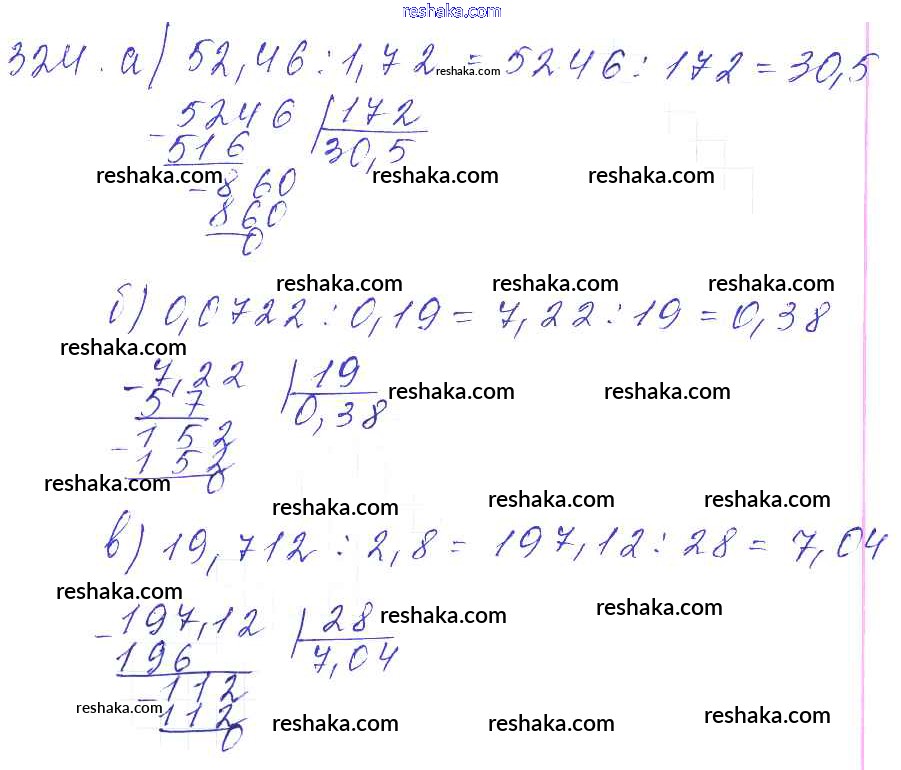 reshaka.com
324. а) 52,46 : 1,72 = 5246 : 172 = 30,5
reshaka.com
- 5246 | 172
516 30,5
reshaka.com reshaka.com reshaka.com
- 860
860
0
reshaka.com reshaka.com reshaka.com
б) 0,0722 : 0,19 = 7,22 : 19 = 0,38
reshaka.com
- 7,22 | 19
reshaka.com reshaka.com
57 0,38
- 152
152
0
reshaka.com reshaka.com reshaka.com reshaka.com
в) 19,712 : 2,8 = 197,12 : 28 = 7,04
reshaka.com
- 197,12 | 28
reshaka.com reshaka.com
196 7,04
- 112
112
0
reshaka.com reshaka.com reshaka.com reshaka.com